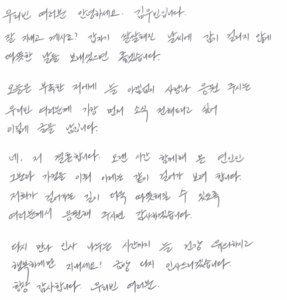 우리빈 여러분 안녕하세요. 김우빈입니다
잘 지내고 계시죠? 갑자기 쌀쌀해진 날씨에 감기 걸리지 않게
따뜻한 날들 보내셨으면 좋겠습니다.
오늘은 부족한 저에게 늘 아낌없이 사랑과 응원 주시는
우리빈 여러분께 가장 먼저 소식 전해드리고 싶어
이렇게 글을 남깁니다.
네. 저 결혼합니다. 오랜 시간 함께해 온 그분과
가정을 이뤄 이제는 같이 걸어가 보려 합니다.
저희가 걸어가는 길이 더욱 따뜻해질 수 있도록
여러분께서 응원해 주시면 감사하겠습니다.
다시 만나 인사 나누는 시간까지 늘 건강 유의하시고
행복하게만 지내세요! 금방 다시 인사드리겠습니다
항상 감사합니다. 우리빈 여러분.